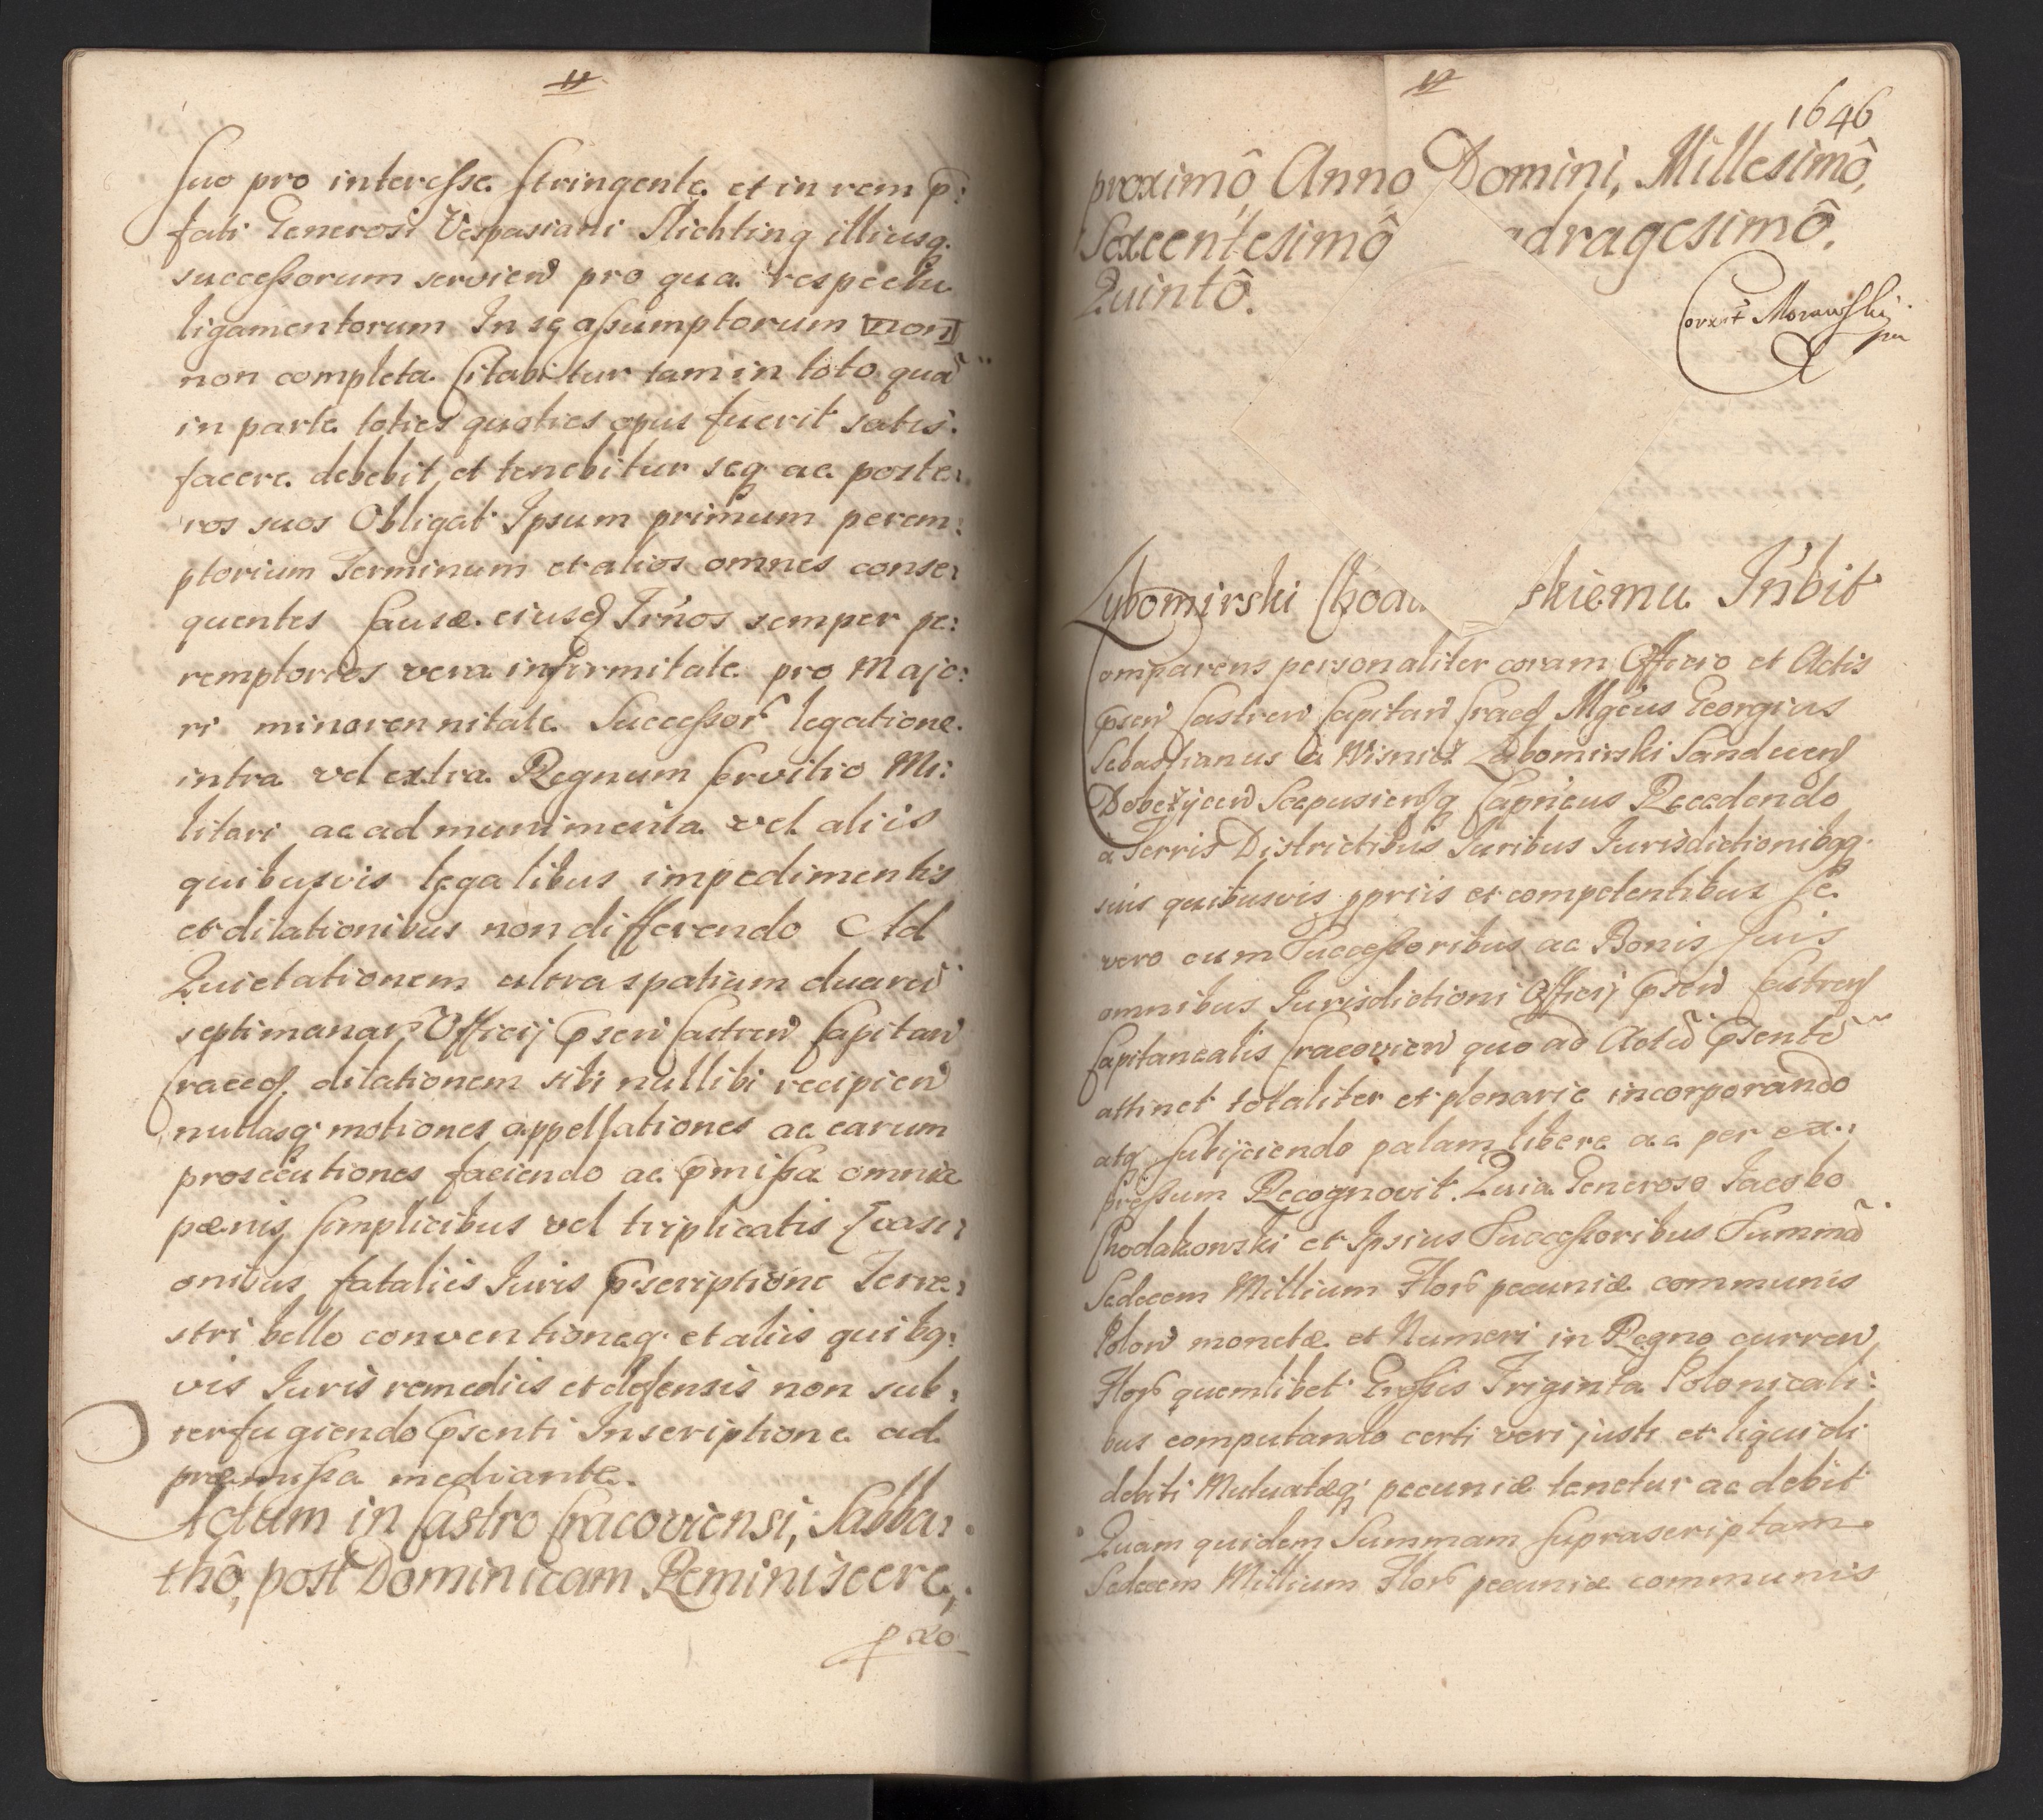 11
suo pro interesse stringente et in rem p:
fati Generosi Vespasiani Slichting illiusq.
successorum servien pro qua respectu
ligamentorum In se assumptorum non
non completa Citabitur tam in toto quã
in parte toties quoties opus fuerit satis:
facere debebit et tenebitur seq ac poste:
ros suos Obligat Ipsum primum perem:
ptorium Terminum et alios omnes conse:
quentes Causæ eiusd Trnos semper pe:
remptorios vera infirmitate pro Majo:
ri minorennitate Successor legatione
intra vel extra Regnum servitio Mi:
litari ac ad munimenta vel aliis
quibusvis legalibus impedimentis
et dilationibus non differendo Ad
Quietationem ultra spatium duar
septimanar Officij Psen Castren Capitan
Cracen, dilationem sibi nullibi recipien
nullasq motiones appellationes ac earum
prosecutiones faciendo ac pmissa omnia
pænis simplicibus vel triplicatis Evasi:
onibus fataliis Iuris Pscriptione Terre:
stri bello conventioneq. et aliis quibq:
vis Iuris remediis et defensis non sub:
terfugiendo Psenti Inscriptione ad
præmissa mediante.
Actum in Castro Cracoviensi, Sabba:
thô, post Dominicam Reminiscere,
pxo
12
1646
proximô Anno Domini, Millesimô,
Sexcentesimô adragesimô.
Quintô.
Corext Morawski
mp
Lybomirski Choda skiemu Inbit
Comparens personaliter coram Officio et Actis
Psen Castren Capitan Crac Mgcus Georgius
Sebastianus à Wisnicz Lubomirski Sandecen
Dobczycen Scepusiensq Capneus Recedendo
a Terris Districtibus Iuribus Iurisdictionibqq.
suis quibusvis ppriis et competentibus se
vero cum Successoribus ac Bonis suis
omnibus Iurisdictioni Officij Psen Castren
Capitanealis Cracovien quo ad Actũ Psente
attinet totaliter et plenarie incorporando
atq subijciendo palam libere ac per ex:
pressum Recognovit. Quia Generoso Iacobo
Chodakowski et Ipsius Successoribus Summã
Sedecem Millium Flor pecuniæ communis
Polon monetæ et Numeri in Regno curren
Flor quemlibet Grossis Triginta Polonicali:
bus computando certi veri justi et liquidi
debiti Mutuatæq pecuniæ tenetur ac debit
Quam quidem Summam supra scriptam
Sedecem Millium Flor pecuniæ communis